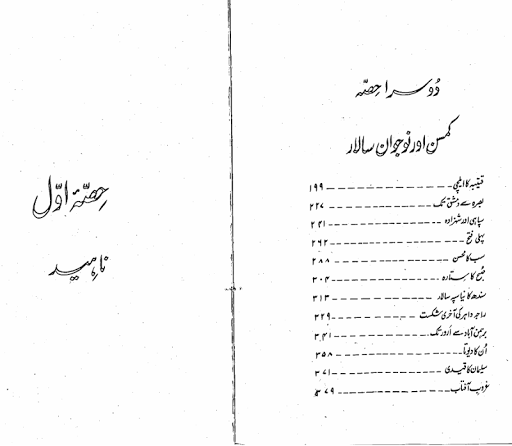 دُوسرا حصّہ
کمسن اور نوجوان سالار
قتیبہ کا ایلچی ـ ۱۹۹
بصرہ سے دمشق تک ـ ۲۲۷
سپاہی اور شہزادہ ـ ۲۴۱
پہلی فتح ـ ۲۶۲
سب کا محسن ـ ۲۸۸
صُبح کا ستارہ ـ ۳۰۴
سندھ کا نیا سپہ سالار ـ ۳۱۳
راجہ داہر کی آخری شکست ـ ۳۲۹
برہمن آباد سے ارور تک ـ ۳۴۱
اُن کا دیوتا ـ ۳۵۸
سلیمان کا قیدی ـ ۳۷۱
غروبِ آفتاب ـ ۳۷۹
حِصّۂ اوّل
ناہید